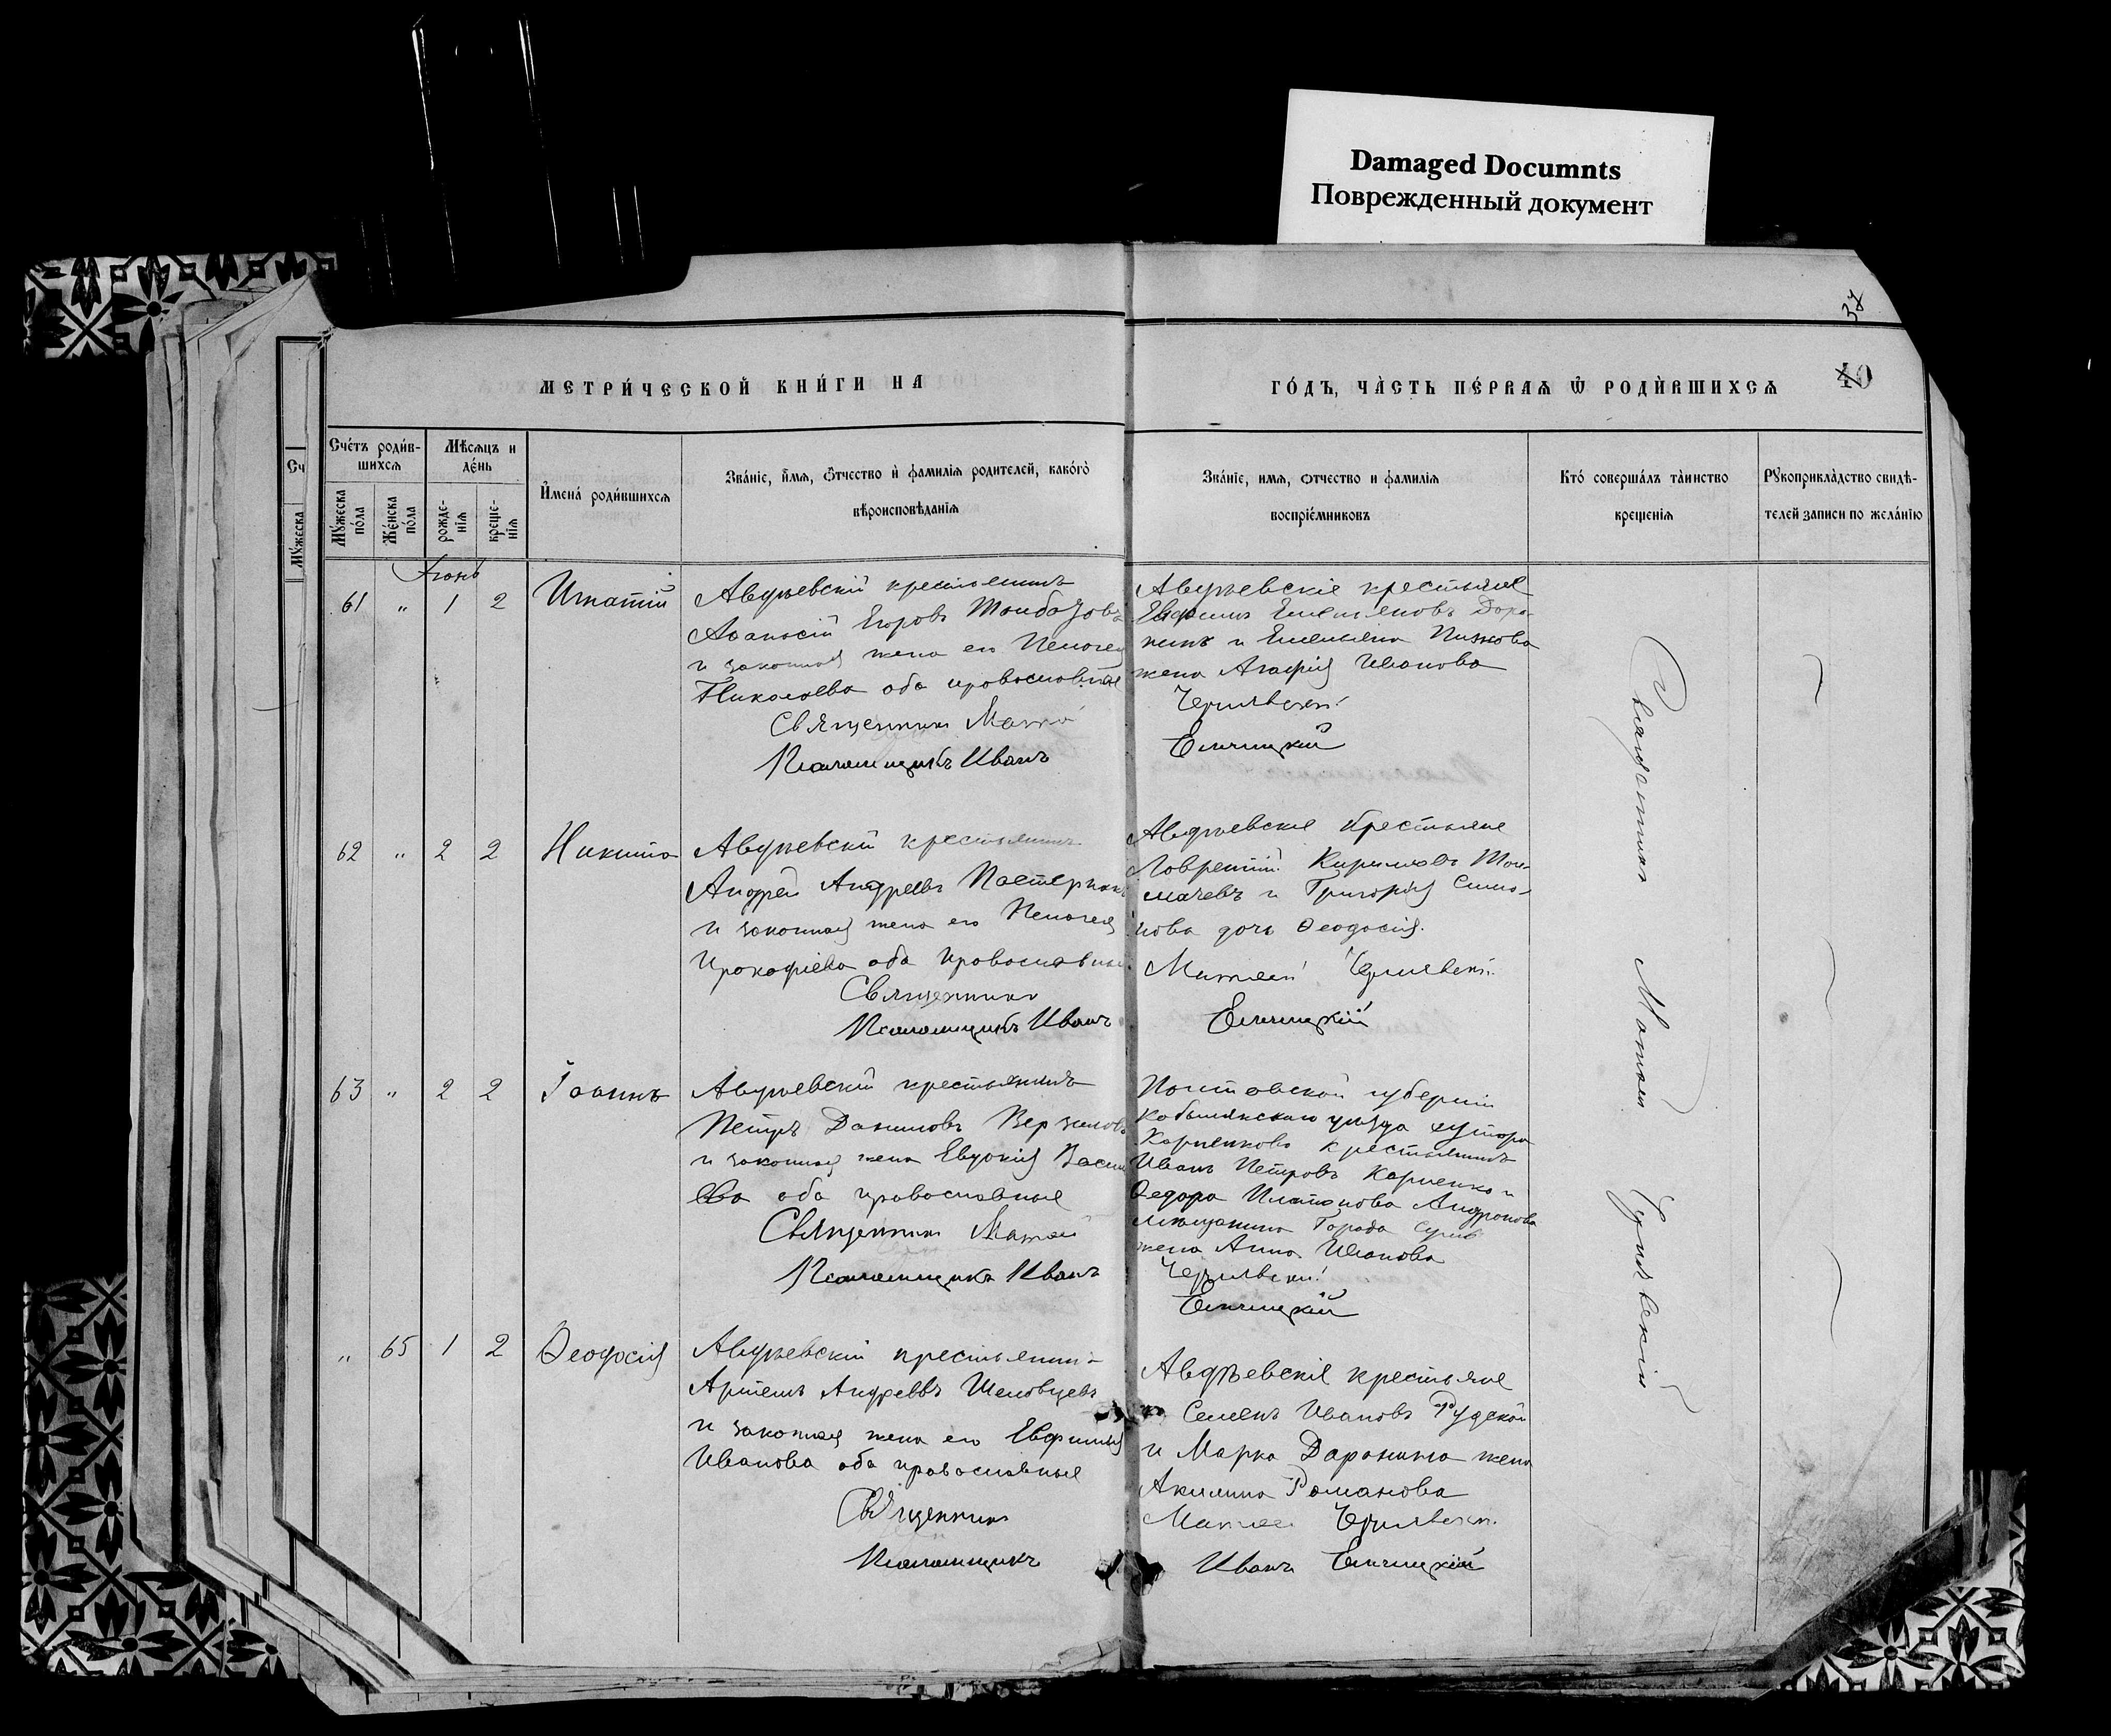 Damaged Documnts
Поврежденный документ
МЕТРИ́ЧЕСКОЙ КНИ́ГИ НА
ГО́ДЪ, ЧА̀СТЬ ПЕ́РВАѦ Ѡ҆ РОДЍВШИХСѦ
40
Сче́тъ роди́в-
шихсѧ
Мѣ́сѧцъ и
де́нь
Му́жеска
по́ла
Же́нска
по́ла
рожде-
нїѧ
креще-
нїѧ
И҆мена́ роди́вшихсѧ
Зва́нїе, и҆́мѧ, ѻ҆́тчество и҆ фамилїѧ родителей, како́гѡ
вѣроисповѣ́данїѧ
Зва́нїе, имѧ, ѻтчество и фамилїѧ
воспрїе́мниковъ
Кто́ соверша́лъ та̀инство
крещенїѧ
Рꙋкоприкла́дство свидѣ́-
телей записи по жела́нїю
Сч
Мꙋ́жеска
Іюнь
61 " 1 2 Игнатій
Авдѣевскій крестьянинъ
Афанасій Егоровъ
и законная жена его Пелагея
Николаева оба православные
Священникъ Матфей
Псаломщикъ Иванъ
Авдѣевскіе крестьяне
Евфимъ Емельяновъ Доро-
нинъ и Емельяна
жена Агафія Иванова
Чернявскій
62 " 2 2 Никита
Авдѣевскій крестьянинъ
Андрей Андреевъ Пастернакъ
и законная жена его Пелагея
Прокофіева оба православные
Священникъ
Псаломщикъ Иванъ
Авдѣевскіе крестьяне
Лаврентій Кириловъ Тол-
мачевъ и Григорія Симо-
нова дочь Ѳеодосія.
Матфей Чернявскій
63 " 2 2 Іоаннъ
Авдѣевскій крестьянинъ
Петръ Даниловъ
и законная жена Евдокія Васил
ева оба православные
Священникъ Матфей
Псаломщикъ Иванъ
Полтавской губерніи
Кобылякскаго уѣзда хутора
Карпенкова крестьянинъ
Иванъ Петровъ Карпенко и
Ѳедора Платонова Андронова
мѣщанина Города
жена Анна Иванова
Чернявскій
" 65 1 2 Ѳеодосія
Авдѣевскій крестьянинъ
Артемъ Андреевъ Шеловцевъ
и законная жена его Евфимія
Иванова оба православные
Священникъ
Псаломщикъ
Авдѣевскіе крестьяне
Семенъ Ивановъ Рудской
и Марка Даронина жена
Акилина Романова
Матфей Чернявскій
Иванъ
Священникъ Матфей Чернявскій